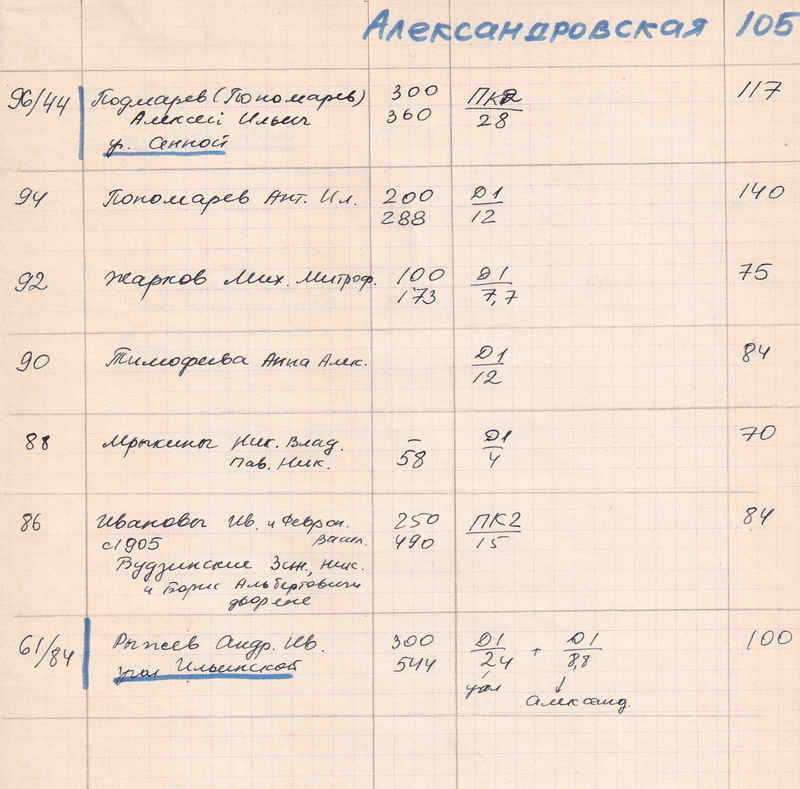 Александровская 105
96/44 Подмарев (Пономарев) 300 ПК2 117
Алексей Ильич 360 28
у. Сенной
94 Пономарев Ант. Ил. 200 Д1 140
288 12
92 Жарков Мих. Митроф. 100 Д1 75
173 7,7
90 Тимофеева Анна Алек. Д1 84
12
88 Мрыкины Ник. Влад. – Д1 70
Пав. Ник. 58 4
86 Ивановы Ив. и Феврон. 250 ПК2 84
с 1905 Васил. 490 15
Вудзинские Зин., Ник.
и Борис Альбертовичи
дворяне
61/84 Рыжев Андр. Ив. 300 Д1 + Д1 100
угол Ильинской 544 24 8,8
угол
Александ.